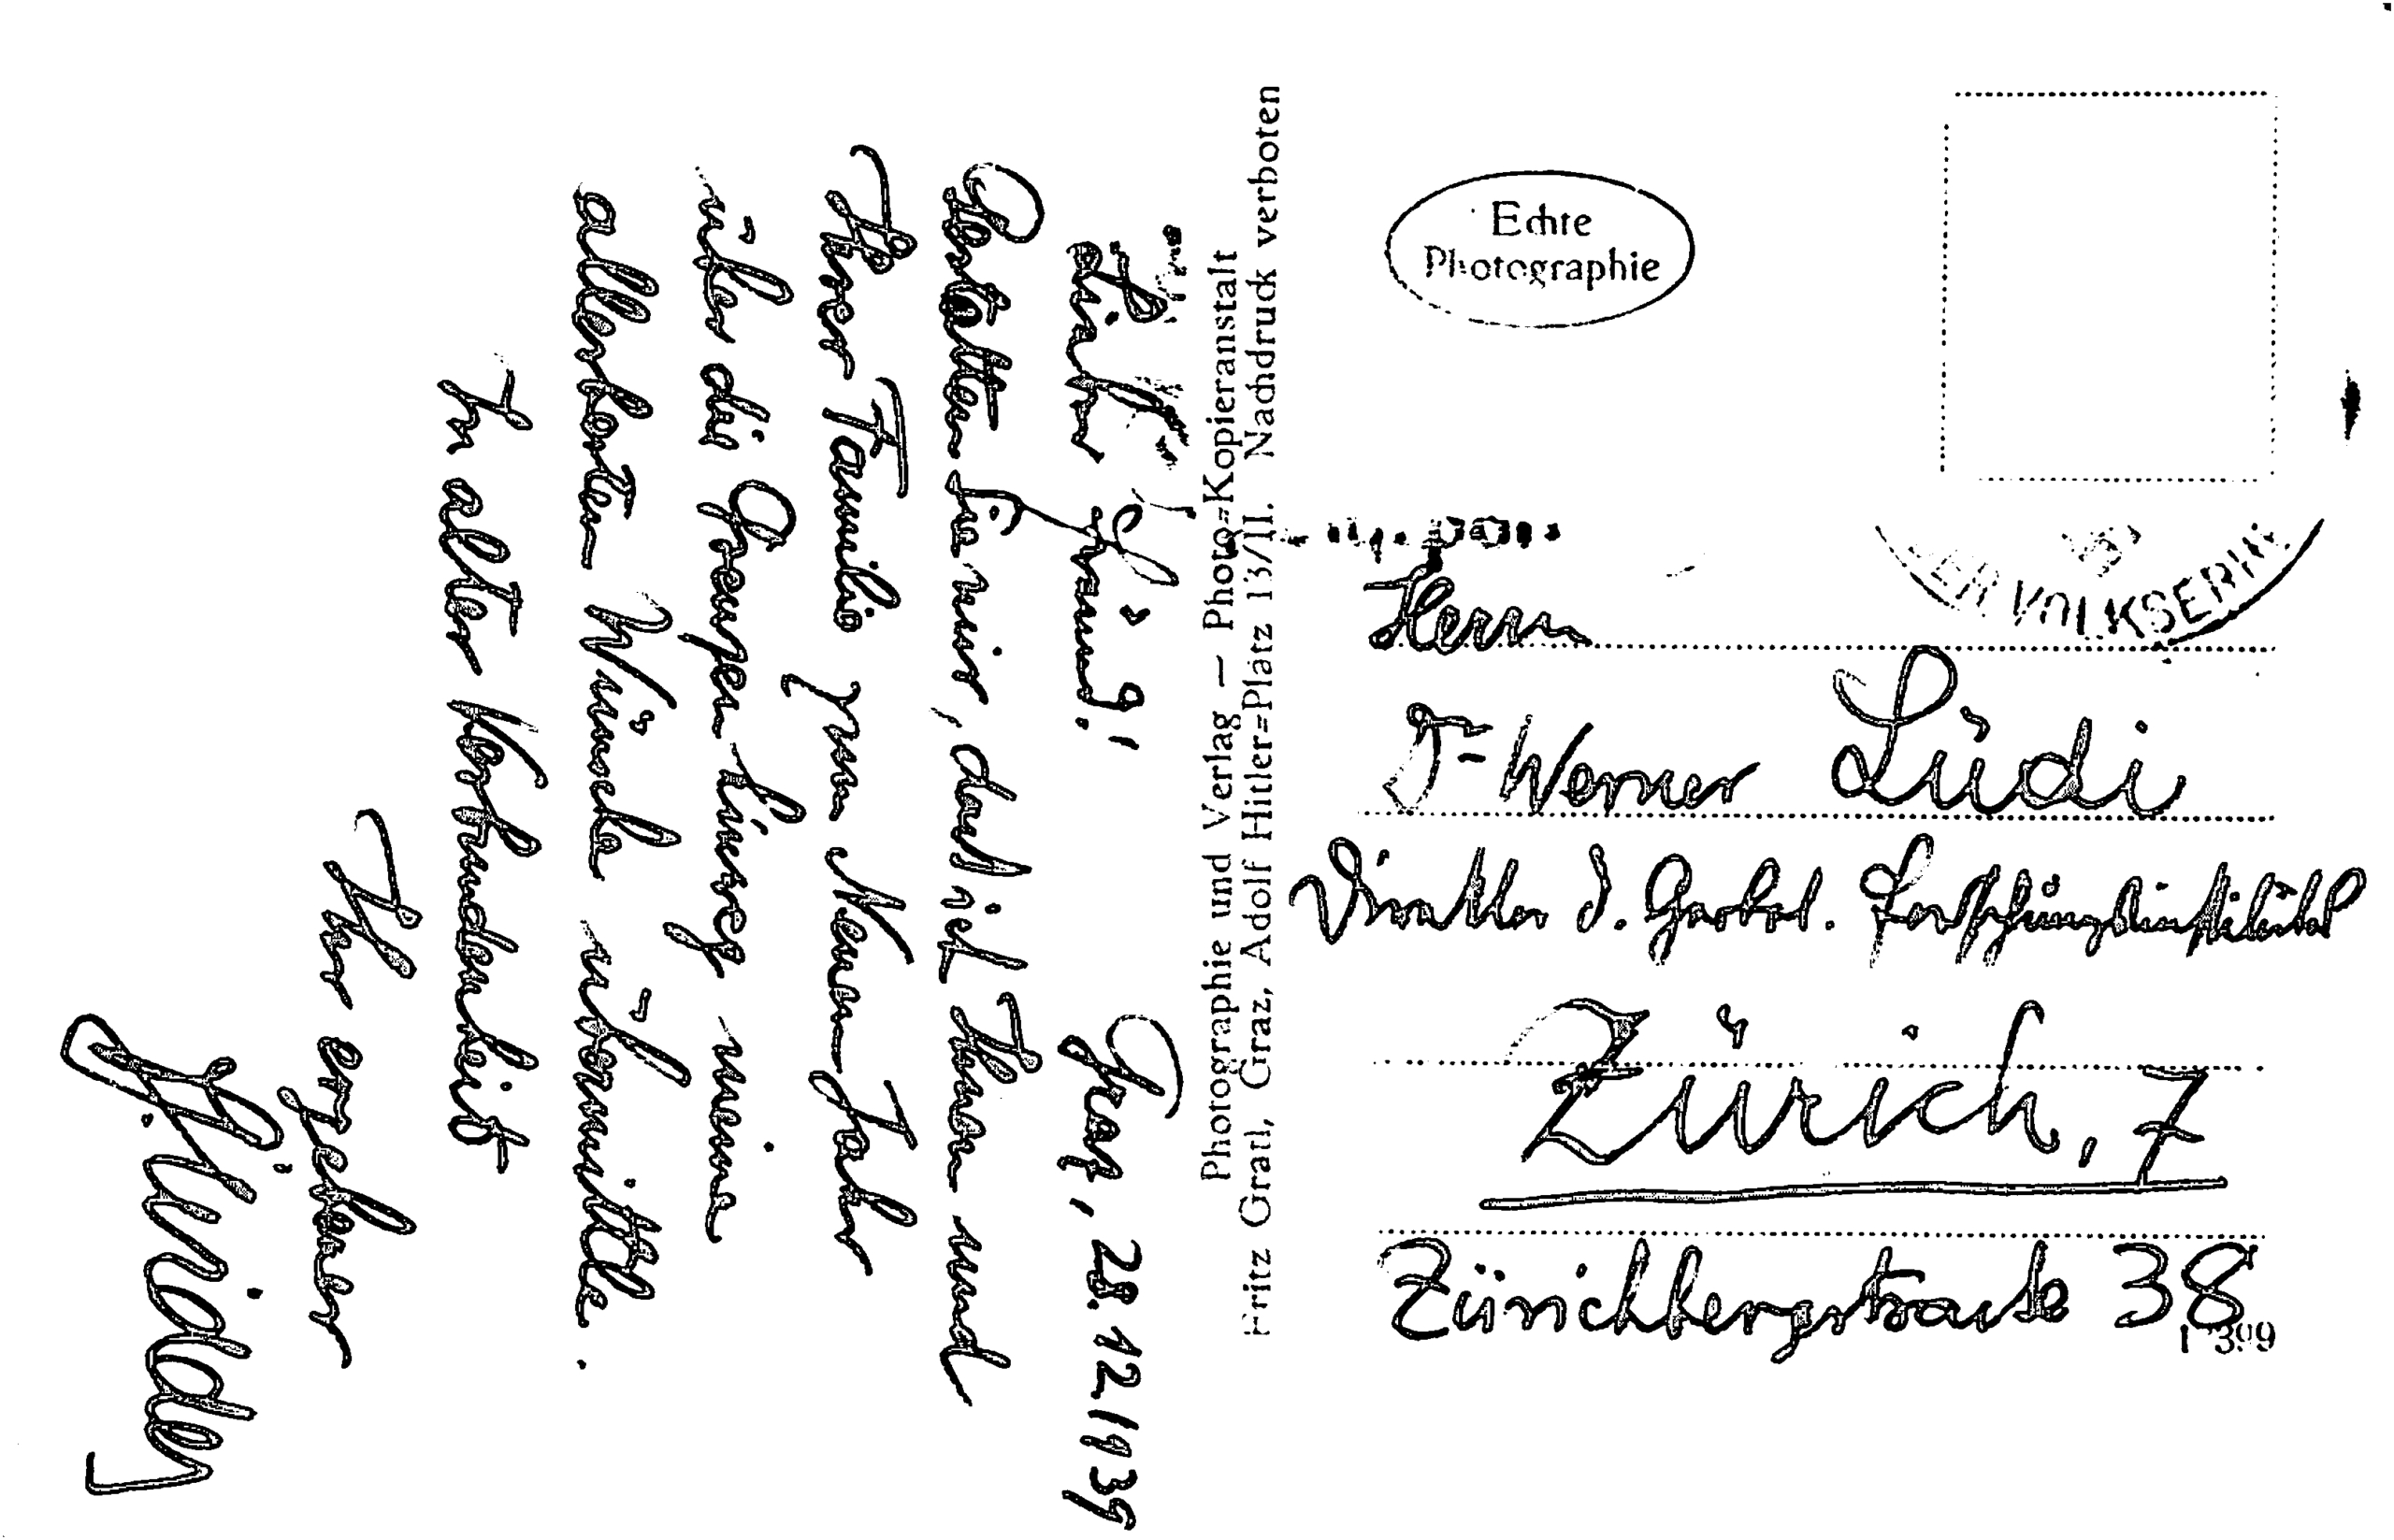 Graz, 28.12.1939
Lieber Freund!
Gestatten Sie mir, daß ich Ihnen und
Ihrer Familie zum Neuen Jahr
über die Grenzen hinweg meine
allerbesten Wünsche übermittle.
In alter Verbundenheit
Ihr ergebener
Photographie und Verlag — Photo=Kopieranstalt
Fritz Gratl, Graz, Adolf Hitler=Platz 13/II. Nachdruck verboten
Echte
Photographie
Herrn
Dr Werner Lüdi
Direktor d. Geobot. Forschungsinstitut
Zürich, 7
Zürichbergstraße 38
399